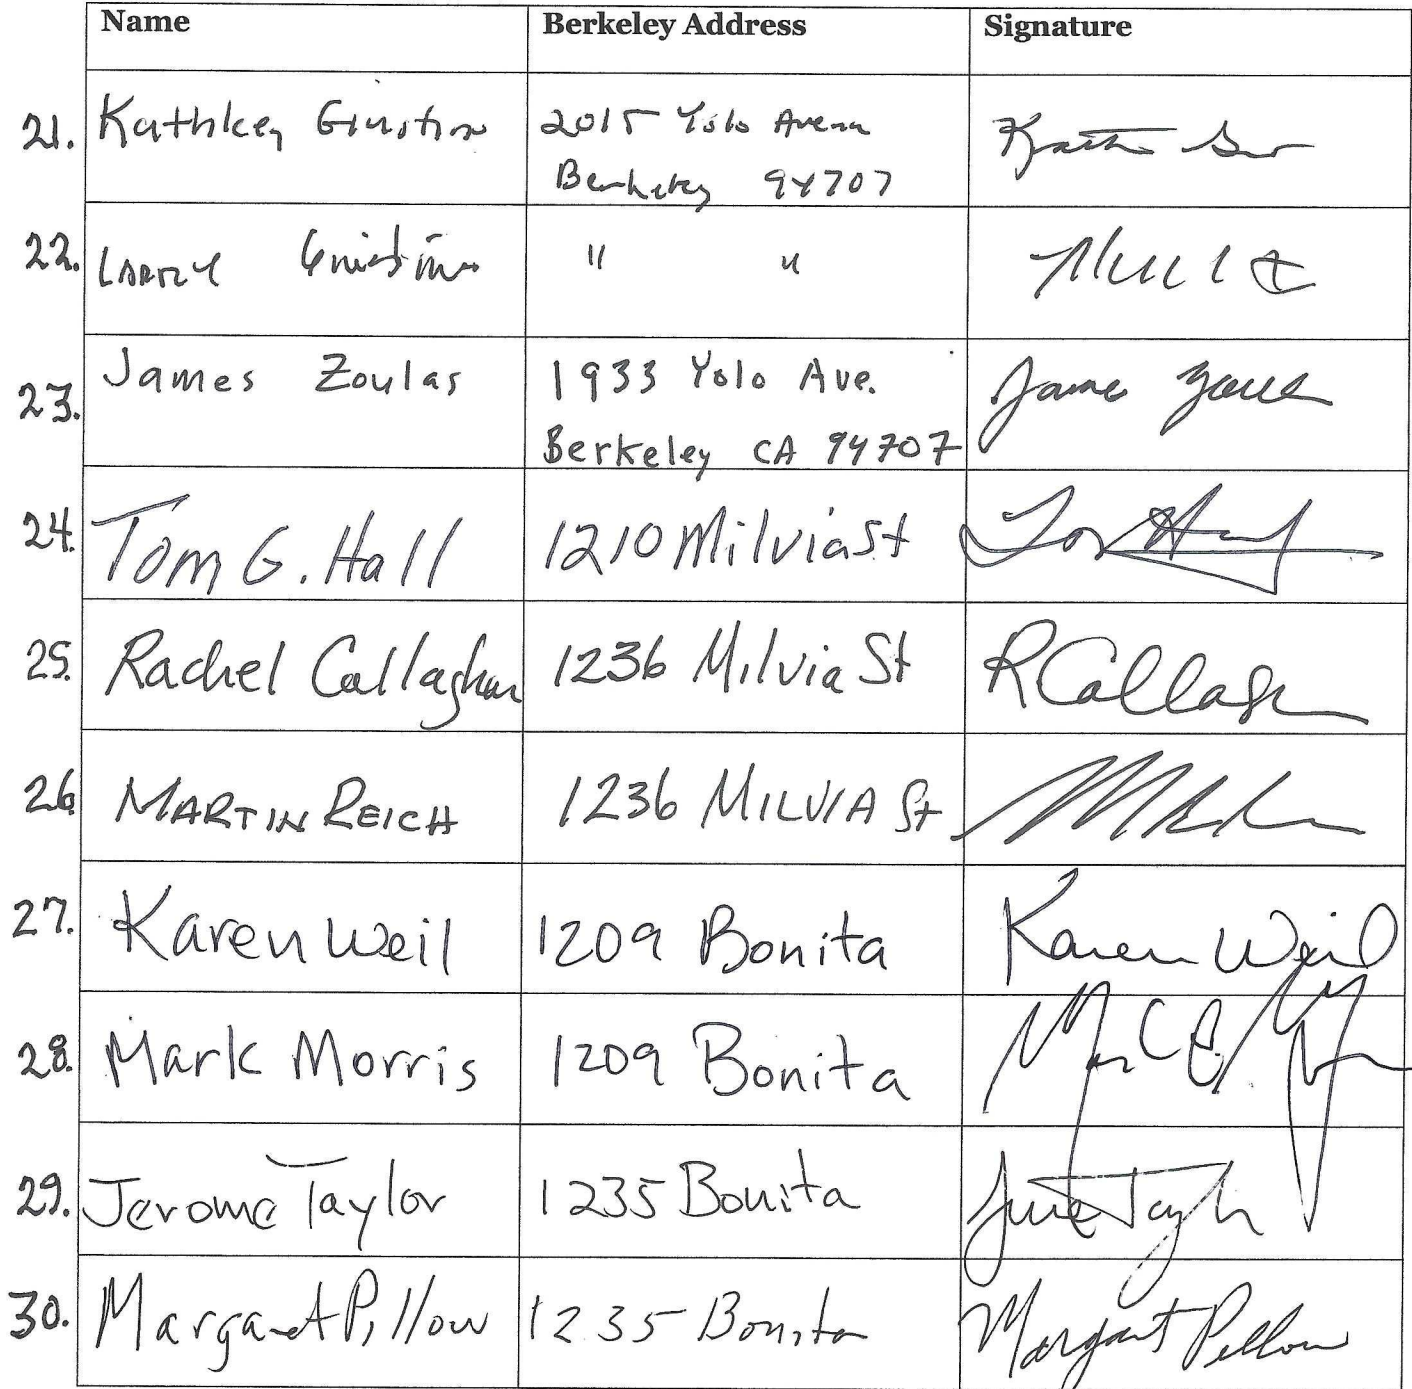 Name Berkeley Address Signature
21. Kathleen 2015 Yolo Avenue
Berkeley 94707
22. Larry " "
23. James Zoulas 1933 Yolo Ave. James Zoulas
Berkeley CA 94707
24. Tom G. Hall 1210 Milvia St Tom Hall
25. Rachel Callaghan 1236 Milvia St RCallagh
26 MARTIN REICH 1236 MILVIA St
27. Karen Weil 1209 Bonita Karen Weil
28. Mark Morris 1209 Bonita
29. Jerome Taylor 1235 Bonita Taylor
30. Margaret Pillow 1235 Bonita Margaret Pillow